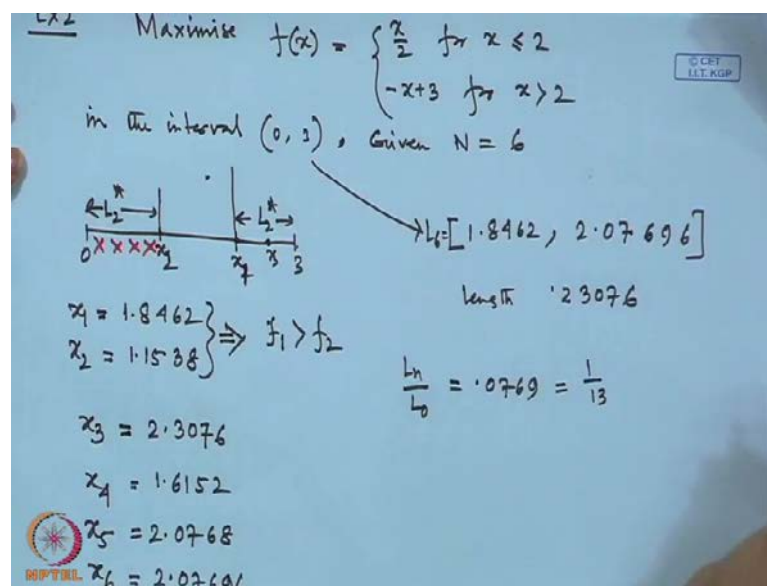 Ex2 Maximise f(x) = { x/2 for x ≤ 2
-x+3 for x > 2
© CET
I.I.T. KGP
in the interval (0, 3), Given N = 6
L₂* L₂*
0 x x x x x₂ x₁ x₃ 3
L₆=[1.8462, 2.07696]
length .23076
x₁ = 1.8462
x₂ = 1.1538 } ⇒ f₁ > f₂
Lₙ/L₀ = .0769 = 1/13
x₃ = 2.3076
x₄ = 1.6152
x₅ = 2.0768
x₆ = 2.07696
NPTEL